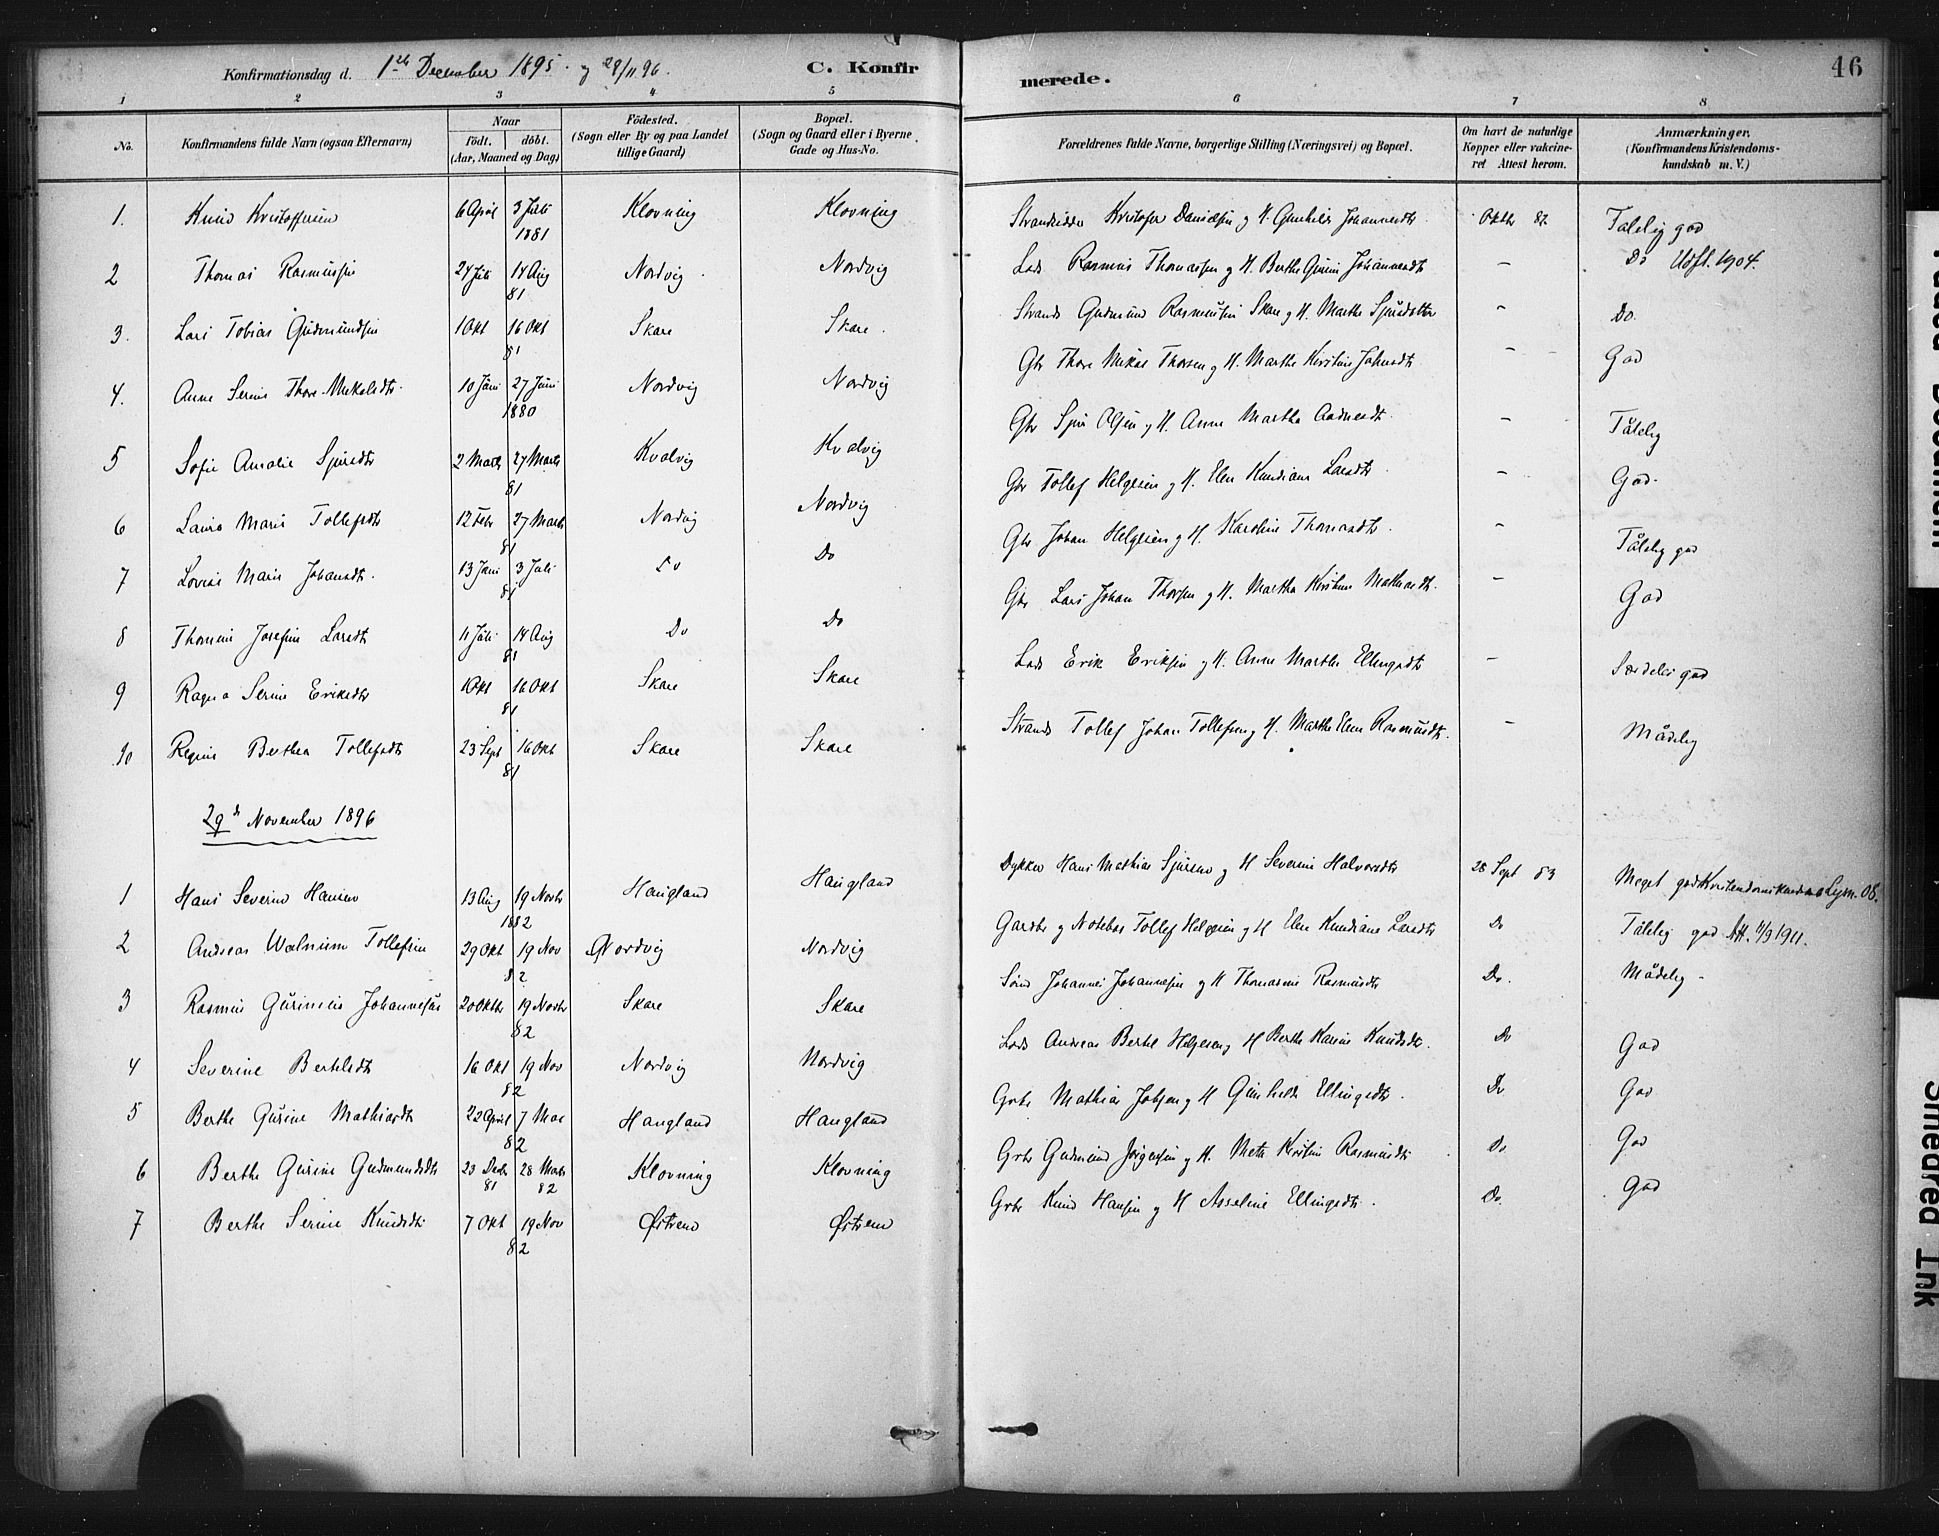 Konfirmationsdag d. 1ste December 1895 og 29/11 96. C. Konfirmerede. 46
1 2 3 4 5 6 7 8
No. Konfirmandens fulde Navn (ogsaa Efternavn) Naar födt. döbt. (Aar, Maaned og Dag) Födested. (Sogn eller By og paa Landet tillige Gaard) Bopæl. (Sogn og Gaard eller i Byerne Gade og Hus-No. Forældrenes fulde Navne, borgerlige Stilling (Næringsvei) og Bopæl. Om havt de naturlige Kopper eller vakcineret Attest herom. Anmærkninger. (Konfirmandens Kristendomskundskab m. V.)
1. Knud Kristoffersen 6 April 3 Juli 1881 Klovning Klovning Strandsidder Kristofer Danielsen og H. Gunhilde Johannesdtr Oktbr 82. Tålelig god
2 Thomas Rasmussen 24 Juli 14 Aug 81 Nordvig Nordvig Lods Rasmus Thomassen og H. Berthe Gurine Johannesdtr – Do Udfl. 1904.
3. Lars Tobias Gudmundsen 1 Okt 16 Okt 81 Skare Skare. Strands Gudmund Rasmussen Skare og H. Marthe Sjursdtter – Do.
4. Anne Serine Thore Mikalsdtr. 10 Juni 27 Juni 1880 Nordvig Nordvig Gbr Thore Mikal Thorsen og H. Marthe Kirstine Johnsdtr – God
5 Sofie Amalie Sjursdtr 2 Marts 27 Marts 81 Kvalvig Kvalvig Gbr Sjur Olsen og H. Anne Martha Aadnesdt. – Tålelig
6 Laura Marie Tollefsdtr 12 Febr 27 Marts 81 Nordvig Nordvig Gbr Tollef Helgesen og H. Elen Kundiane Larsdtr – God.
7 Lovise Marie Johansdtr. 13 Juni 3 Juli 81 Do Do Gbr Johan Helgesen og H. Karoline Thomasdtr. – Tålelig god
8 Thomine Josefine Larsdtr 11 Juli 14 Aug 81 Do Do Gbr Lars Johan Thorsen og H. Martha Kirstine Mathiasdtr. – God
9 Ragna Serine Eriksdtr 1 Okt 16 Okt 81 Skare Skare Lods Erik Eriksen og H. Anne Marthe Ellingsdtr – Særdeles god
10 Regine Bertha Tollefsdtr 23 Sept 16 Okt 81 Skare Skare Strands Tollef Johan Tollefsen og H. Marthe Elen Rasmusdtr. – Mådelig
29de November 1896
1 Hans Severin Hansen 13 Aug 19 Novbr 1882 Haugland Haugland Dykker Hans Mathias Sjursen og H Severine Halvorsdtr 25 Sept 83 Meget god Kristendomskundsk Lysn. 08.
2 Andreas Tollefsen 29 Okt 19 Nov 82 Nordvig Nordvig Gardbr og Notebas Tollef Helgesen og H Elen Kundiane Larsdtr Do Tålelig god Att. 11/9 1911.
3 Rasmus Gurinius Johannessen 20 Oktbr 19 Novbr 82 Skare Skare Johannes Johannesen og H Thomasine Rasmusdtr Do. Mådelig –
4 Severine Bertelsdtr 16 Okt 19 Nov 82 Nordvig Nordvig Lods Andreas Bertel Helgesen og H Berthe Karine Knudsdtr. Do God
5 Berthe Gurine Mathiasdtr 22 April 7 Mai 82 Haugland Haugland Grbr Mathias Jobsen og H Gunhilde Ellingsdtr. Do God
6 Berthe Gurine Gudmundsdtr 23 Decbr 81 28 Marts 82 Klovning Klovning Grbr Gudmund Jørgensen og H. Mete Kirstine Rasmusdtr Do God
7 Berthe Serine Knudsdtr 7 Okt 19 Nov 82 Østrem Østrem Grbr Knud Hansen og H Asseline Ellingsdtr. Do. God
Faded Document
Smeared Ink